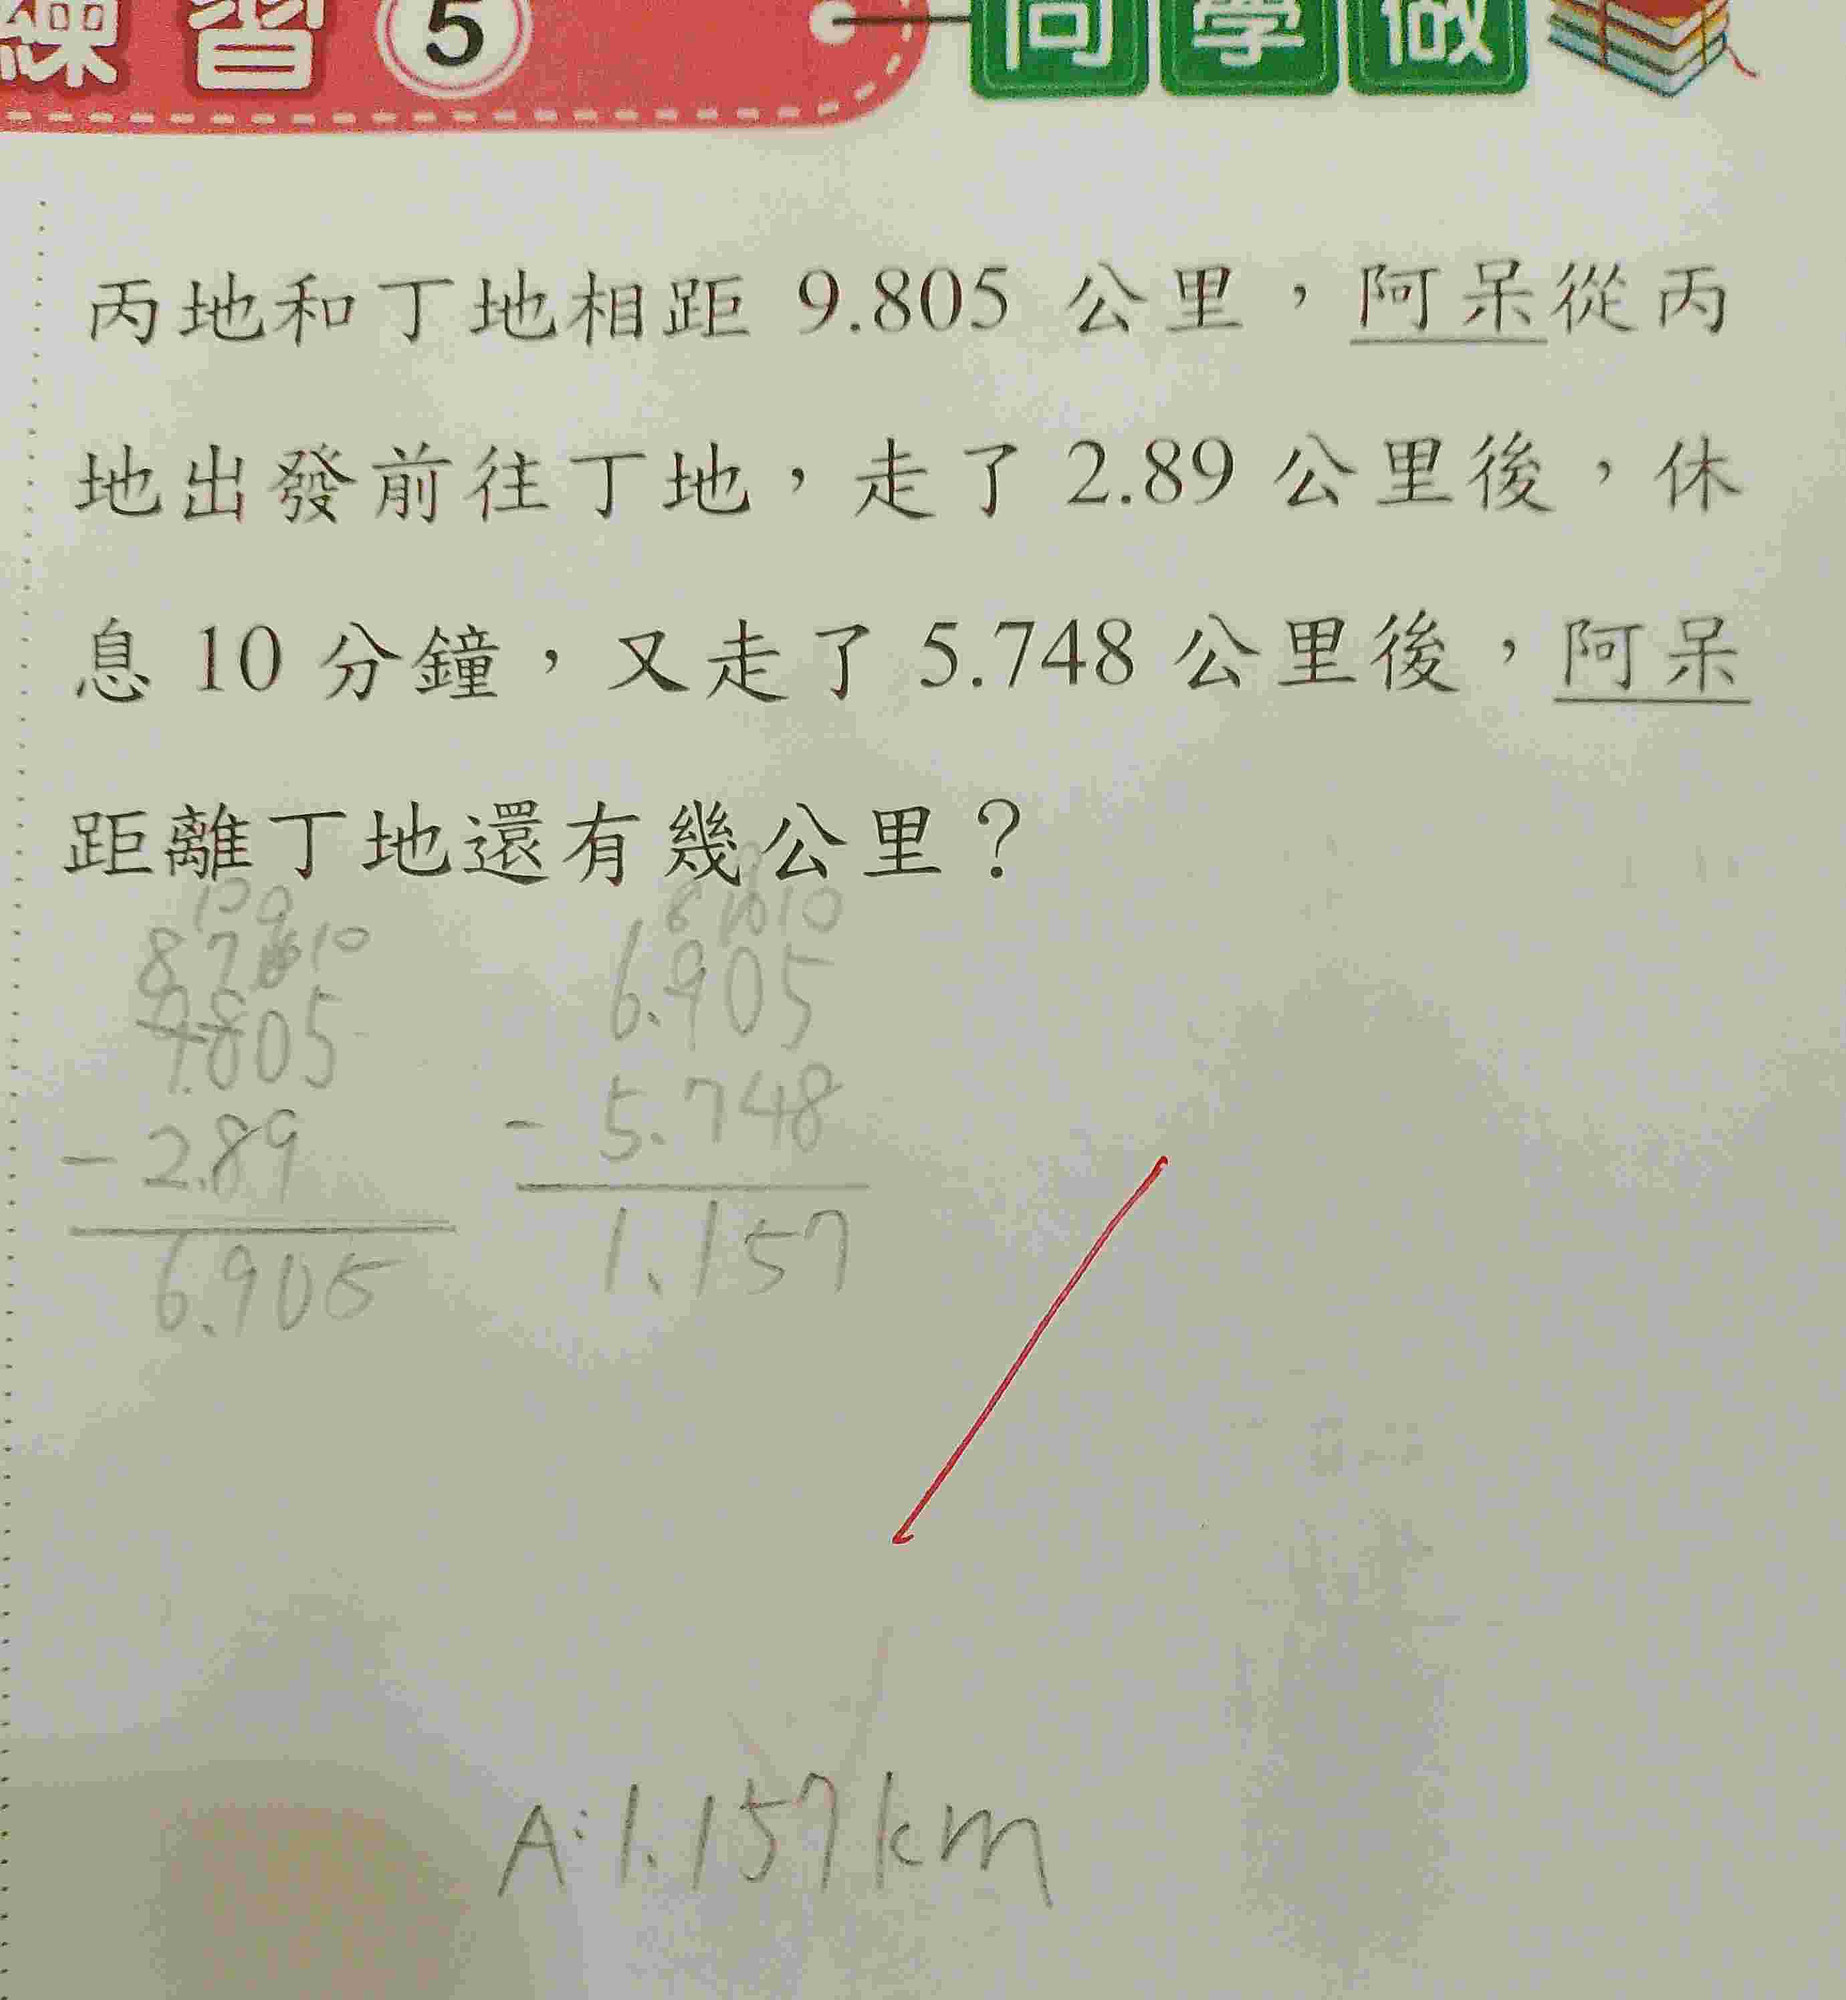 練習 5 同學做
丙地和丁地相距 9.805 公里，阿呆從丙
地出發前往丁地，走了 2.89 公里後，休
息 10 分鐘，又走了 5.748 公里後，阿呆
距離丁地還有幾公里？
10 9
8 7 10 10
9.805
- 2.89
6.905
8 10 10
6.905
- 5.748
1.157
A:1.157km